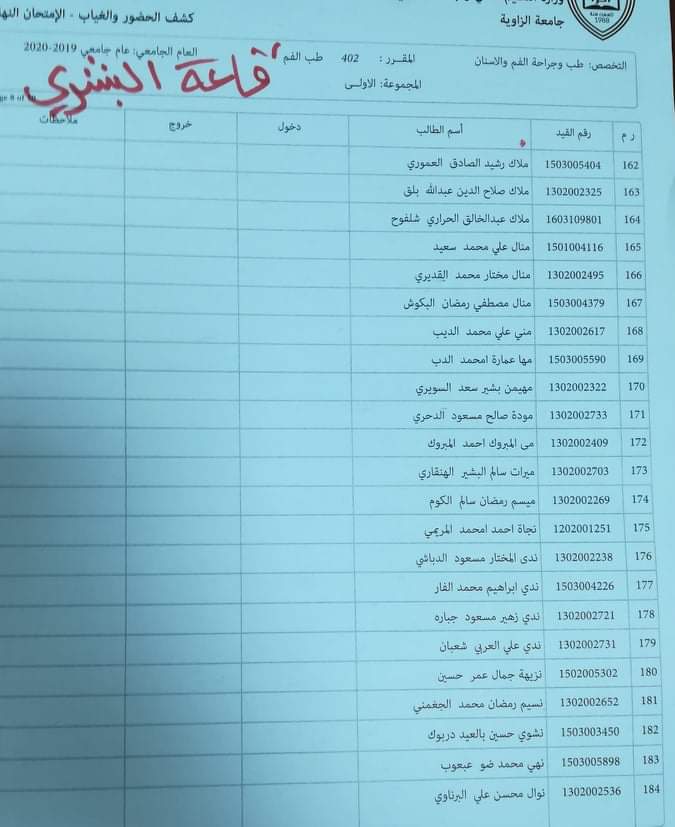 جامعة الزاوية
كشف الحضور والغياب - الإمتحان
التخصص: طب وجراحة الفم والاسنان
المقرر: 402 طب الفم
العام الجامعي: عام جامعي 2019-2020
المجموعة: الاولى
قاعة البشري
ر م رقم القيد أسم الطالب دخول خروج ملاحظات
162 1503005404 ملاك رشيد الصادق العموري
163 1302002325 ملاك صلاح الدين عبدالله بلق
164 1603109801 ملاك عبدالخالق الحراري شلفوح
165 1501004116 منال علي محمد سعيد
166 1302002495 منال مختار محمد القديري
167 1503004379 منال مصطفي رمضان البكوش
168 1302002617 مني علي محمد الديب
169 1503005590 مها عمارة امحمد الدب
170 1302002322 مهيمن بشير سعد السويري
171 1302002733 مودة صالح مسعود الدحري
172 1302002409 مى المبروك احمد المبروك
173 1302002703 ميرات سالم البشير الهنقاري
174 1302002269 ميسم رمضان سالم الكوم
175 1202001251 نجاة احمد امحمد المريمي
176 1302002238 ندى المختار مسعود الدباشي
177 1503004226 ندي ابراهيم محمد الفار
178 1302002721 ندي زهير مسعود جباره
179 1302002731 ندي علي العربي شعبان
180 1502005302 نزيهة جمال عمر حسين
181 1302002652 نسيم رمضان محمد الجغمني
182 1503003450 نشوي حسين بالعيد دربوك
183 1503005898 نهي محمد ضو عبعوب
184 1302002536 نوال محسن علي البرناوي